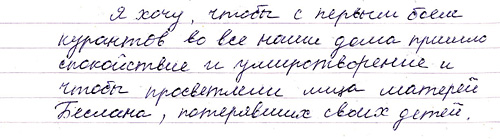 Я хочу, чтобы с первым боем
курантов во все наши дома пришло
спокойствие и умиротворение и
чтобы просветлели лица матерей
Беслана, потерявших своих детей.